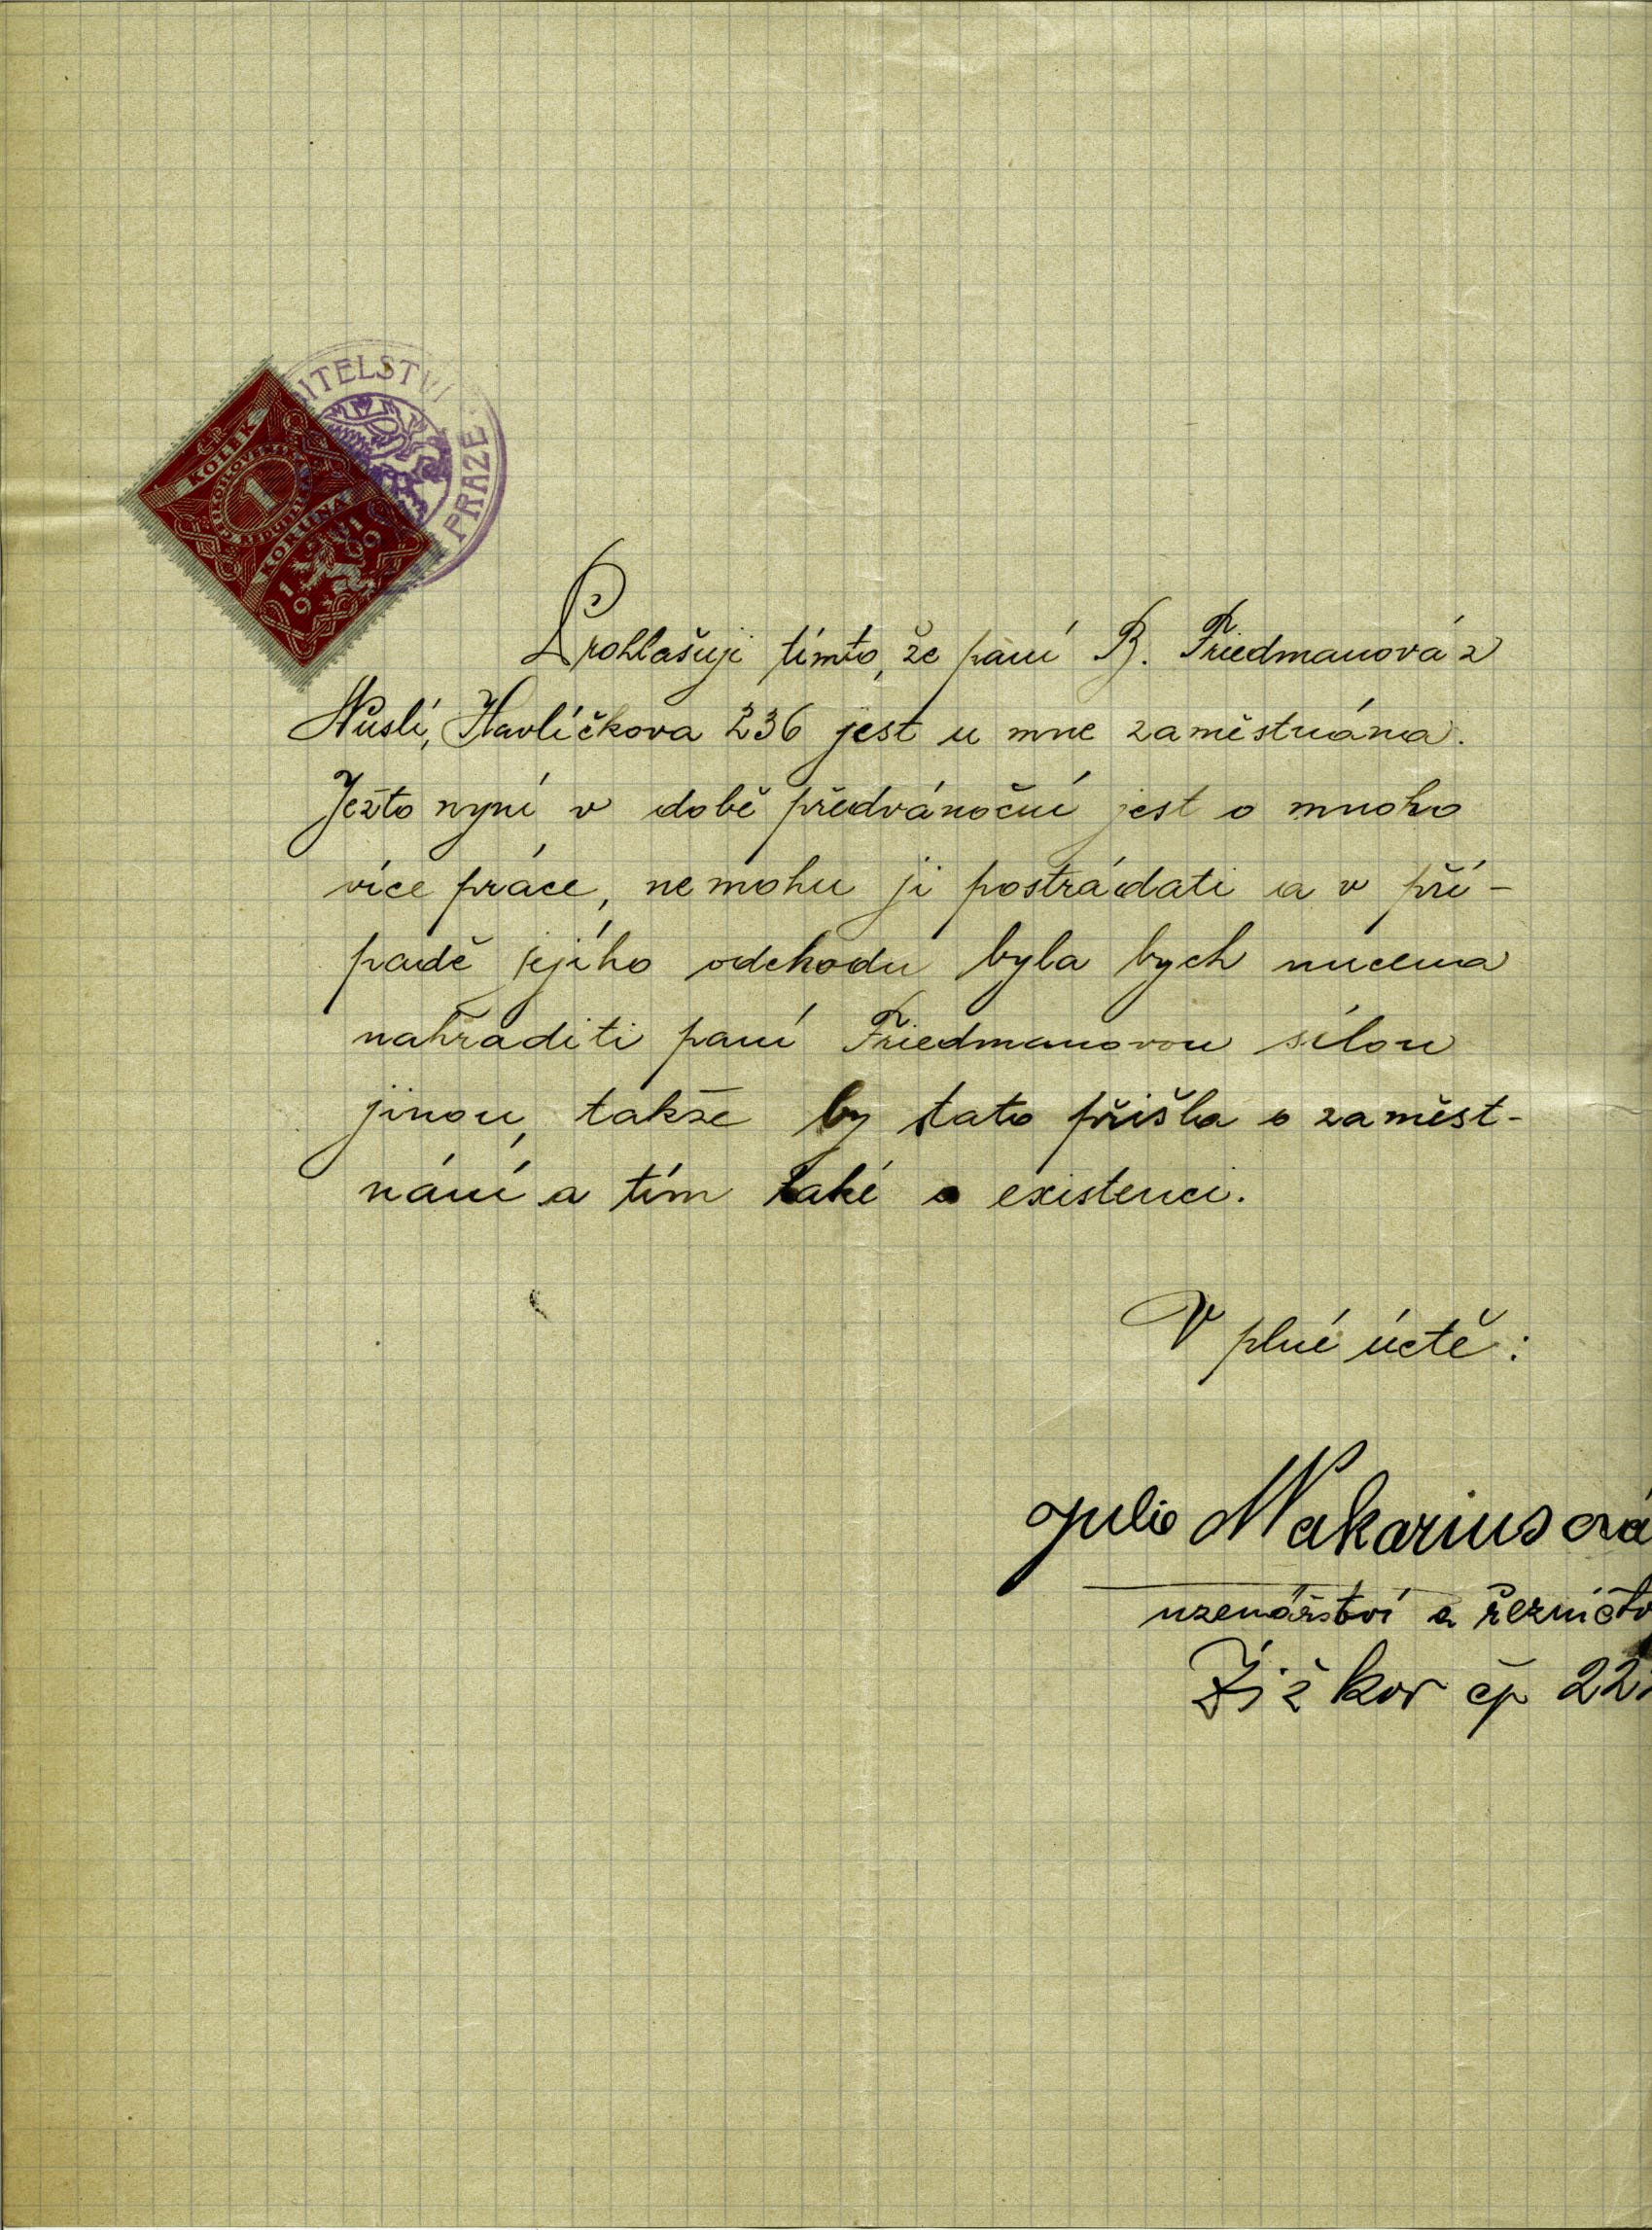 ITELSTVÍ
PRAZE
Č.R.
KOLEK
1
KORUNA
1919
Prohlašuji tímto, že paní B. Friedmanová z
Nuslí, Havlíčkova 236 jest u mne zaměstnána.
Ježto nyní v době předvánoční jest o mnoho
více práce, nemohu ji postrádati a v pří-
padě jejího odchodu byla bych nucena
nahraditi paní Friedmanovou sílou
jinou, takže by tato přišla o zaměst-
nání a tím také o existenci.
V plné úctě:
Julie Makariusová
uzenářství a řeznictv
Žižkov čp 22